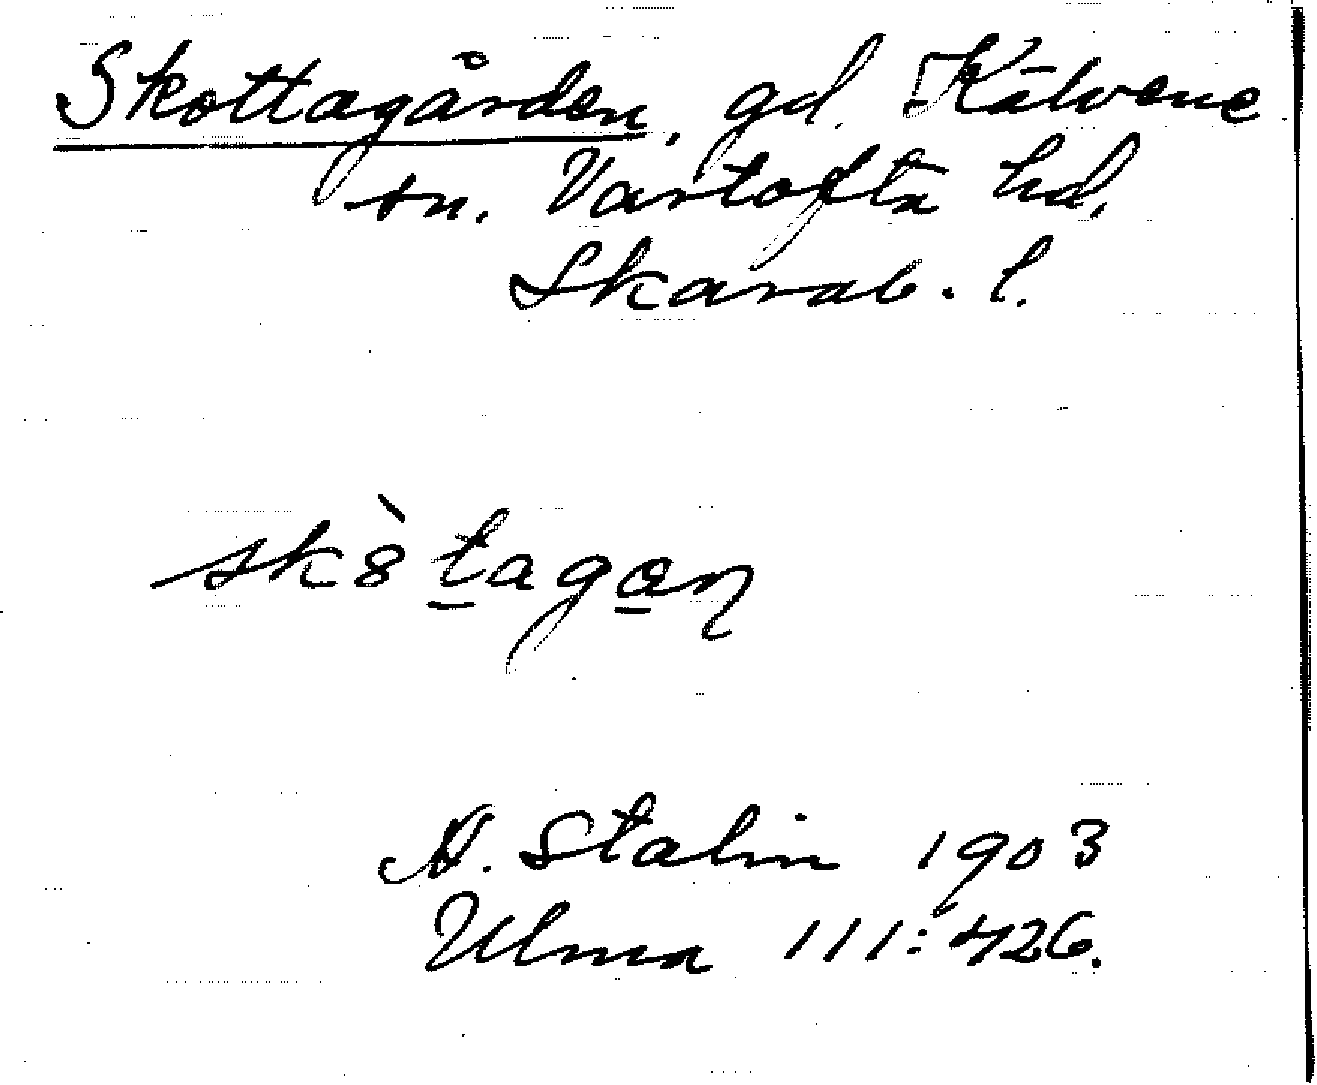 Skottagården, gd. Kälvene
sn. Vartofta hd,
Skarab. l.
sk8̀t̲ago̲ɳ
A. Stalin 1903
Ulma 111:426.